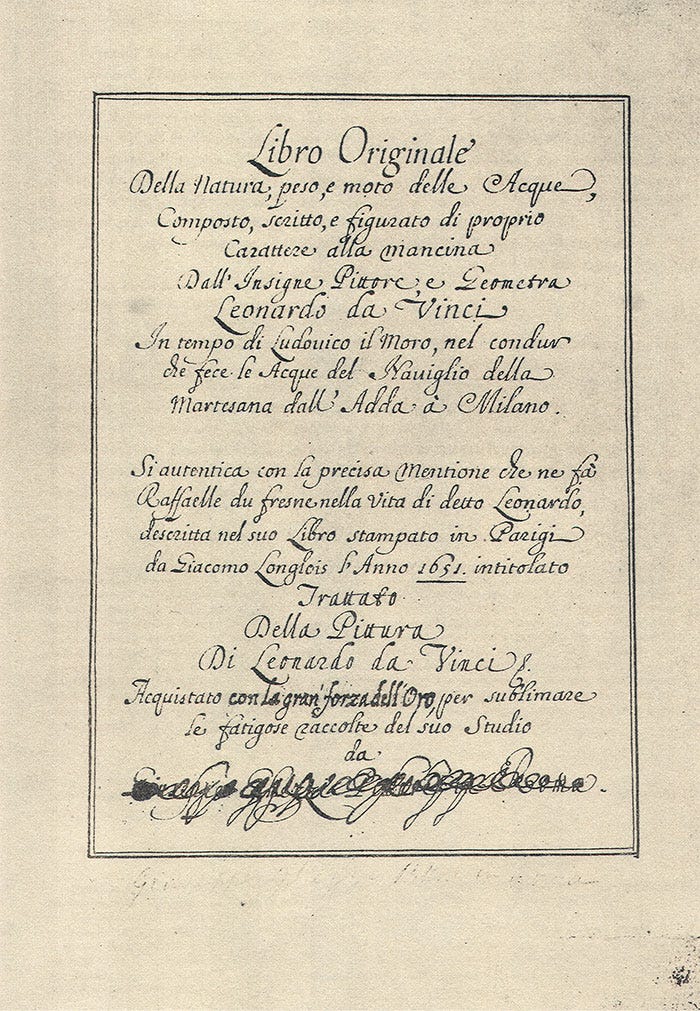 Libro Originale
Della Natura, peso, e moto delle Acque,
Composto, scritto, e figurato di proprio
Carattere alla mancina
Dall' Insigne Pittore, e Geometra
Leonardo da Vinci
In tempo di Ludovico il Moro, nel condur
che fece le Acque del Naviglio della
Martesana dall' Adda à Milano.
Si autentica con la precisa Mentione che ne fà
Raffaelle du fresne nella Vita di detto Leonardo,
descritta nel suo Libro stampato in Parigi
da Giacomo Longlois l'Anno 1651. intitolato
Trattato
Della Pittura
Di Leonardo da Vinci
Acquistato con la gran' forza dell'Oro, per sublimare
le fatigose raccolte del suo Studio
da